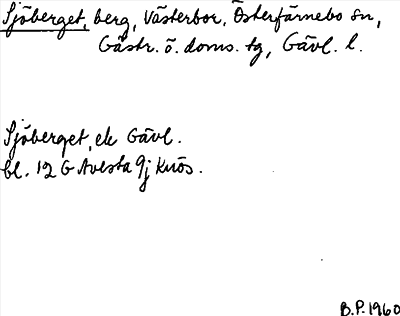 Sjöberget, berg, Västerbor, Österfärnebo sn,
Gästr. ö. doms. tg, Gävl. l.
Sjöberget, ek Gävl.
bl. 12 G Avesta 9j Knös.
B.P. 1960